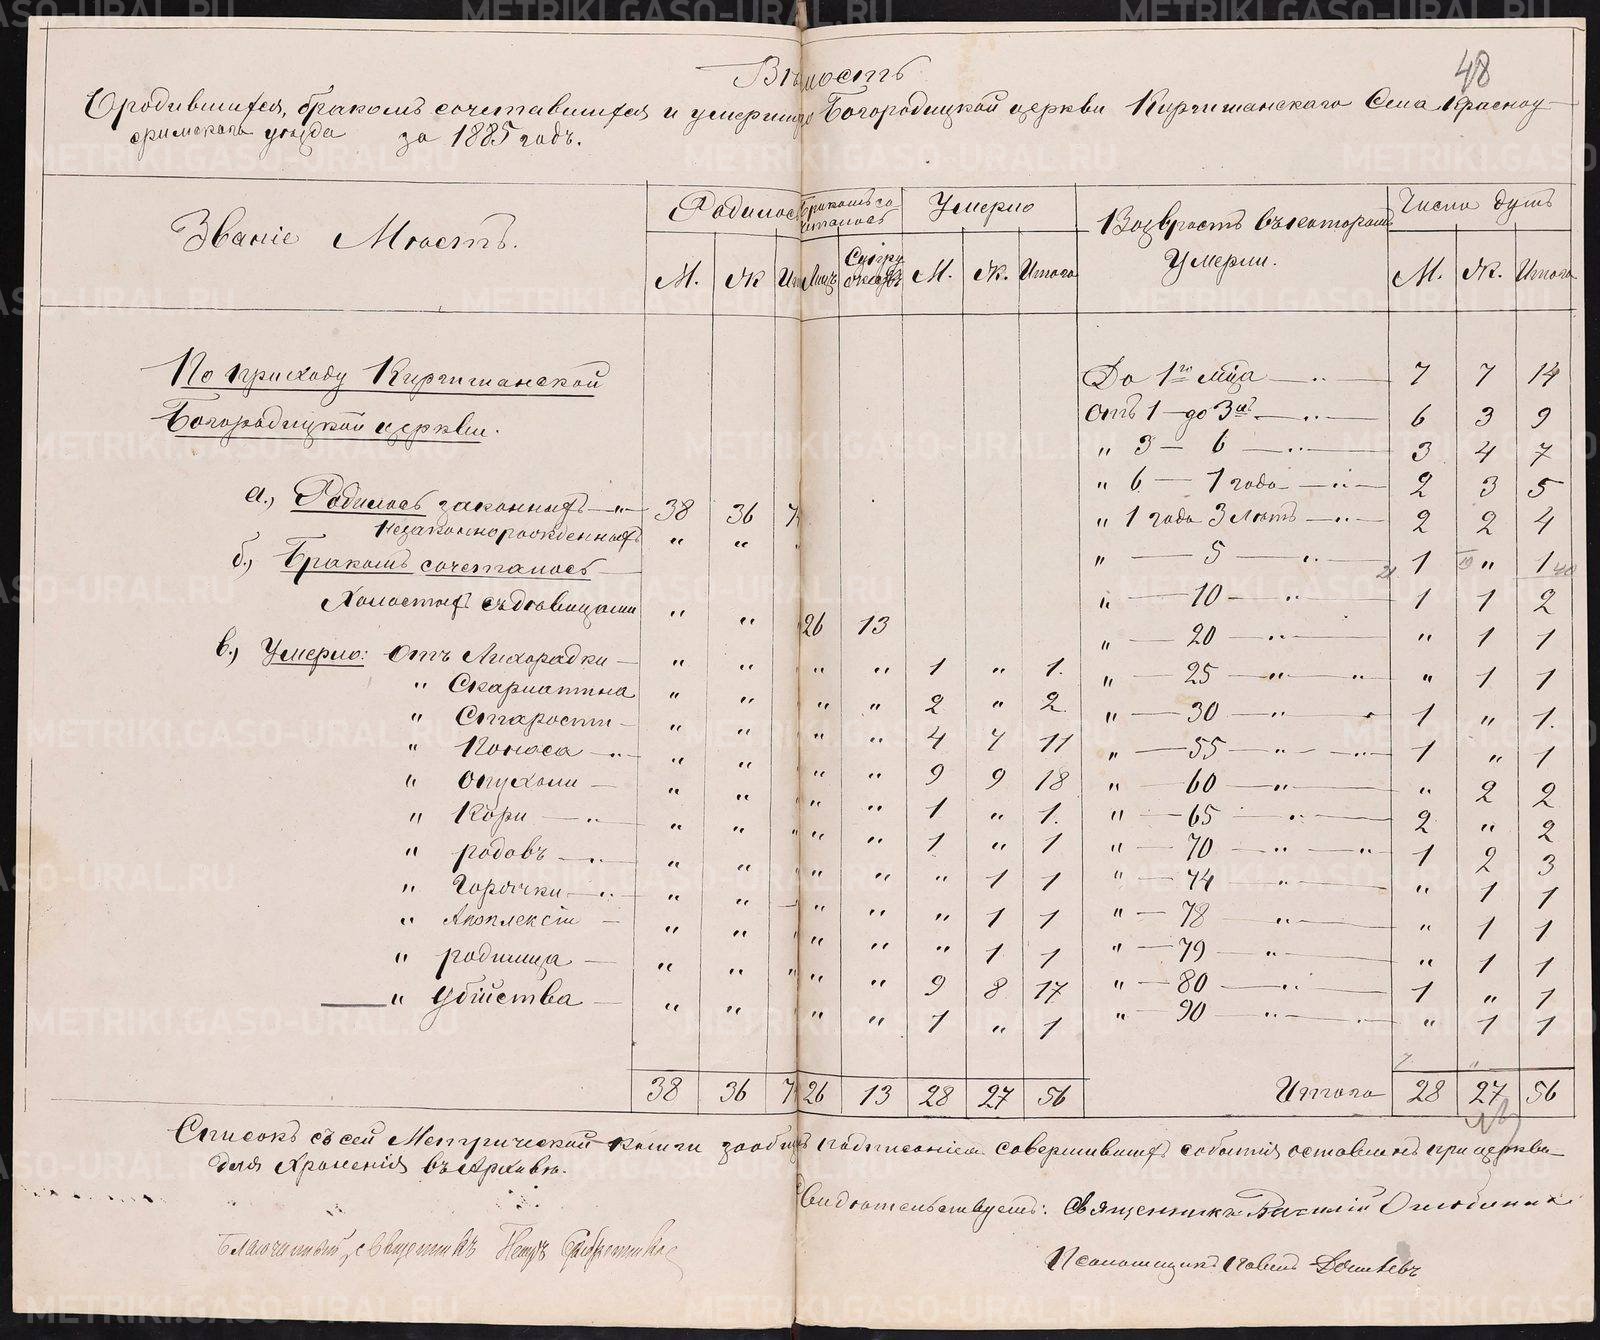 Вѣдомость
О родившихся, бракомъ сочетавшихся и умершихъ Богородицкой церкви Киргишанскаго Села Красноу-
фимскаго уѣзда за 1885 годъ.
48
Званіе Мѣстъ. Родилось Бракомъ со- Умерло Возврастъ въ которомъ Число душъ
четалось Умерли.
М. Ж Ит Лицъ Супру М. Ж. Итого М. Ж. Итого
По приходу Киргишанской
Богородицкой церкви.
До 1го мца — „ — 7 7 14
Отъ 1 — до 3хъ — „ — 6 3 9
„ 3 — 6 — „ — 3 4 7
„ 6 — 1 года — „ — 2 3 5
а., Родилось законныхъ — „ — 38 36 7 „ 1 года 3 лѣтъ — „ — 2 2 4
Незаконнорожденныхъ „ „ „ — 5 — „ — 1 „ 1
б., Бракомъ сочеталось — 21 19 40
„ — 10 — „ — 1 1 2
Холостыхъ съ дѣвицами „ „ 26 13 „ — 20 — „ — „ 1 1
в., Умерло: Отъ Лихорадки — „ „ „ „ 1 „ 1. „ — 25 — „ — „ „ 1 1
„ Скарлатина „ „ „ „ 2 „ 2 „ — 30 — „ 1 „ 1.
„ Старости — „ „ „ „ 4 7 11 „ — 55 — „ — „ — 1 „ 1
„ Поноса — „ „ „ „ „ 9 9 18 „ — 60 — „ — „ 2 2
„ Опухоли — „ „ „ „ 1 „ 1. „ — 65 — „ — 2 „ 2
„ Кори — „ — „ „ „ „ 1 „ 1 „ — 70 — „ — „ 1 2 3
„ родовъ — „ „ „ „ „ „ 1 1 „ — 74 — „ — „ 1 1
„ Горячки — „ „ „ „ „ „ 1 1 „ — 78 „ — „ 1 1
„ Апоплексіи — „ „ „ „ „ 1 1 „ — 79 — „ — „ 1 1
„ родимца — „ „ „ „ 9 8 17 „ — 80 — „ — 1 „ 1
„ Убійства — „ „ „ „ 1 „ 1 „ — 90 — „ — „ 1 1
38 36 7 26 13 28 27 56 Итого 28 27 56
Списокъ съ сей Метрической книги за общимъ подписаніемъ совершившихъ событія оставленъ при церкви
для храненія въ Архивѣ.
Свидѣтельствуетъ: Священникъ Василій
Благочинный, священникъ
Псаломщикъ Павелъ
METRIKI.GASO-URAL.RU